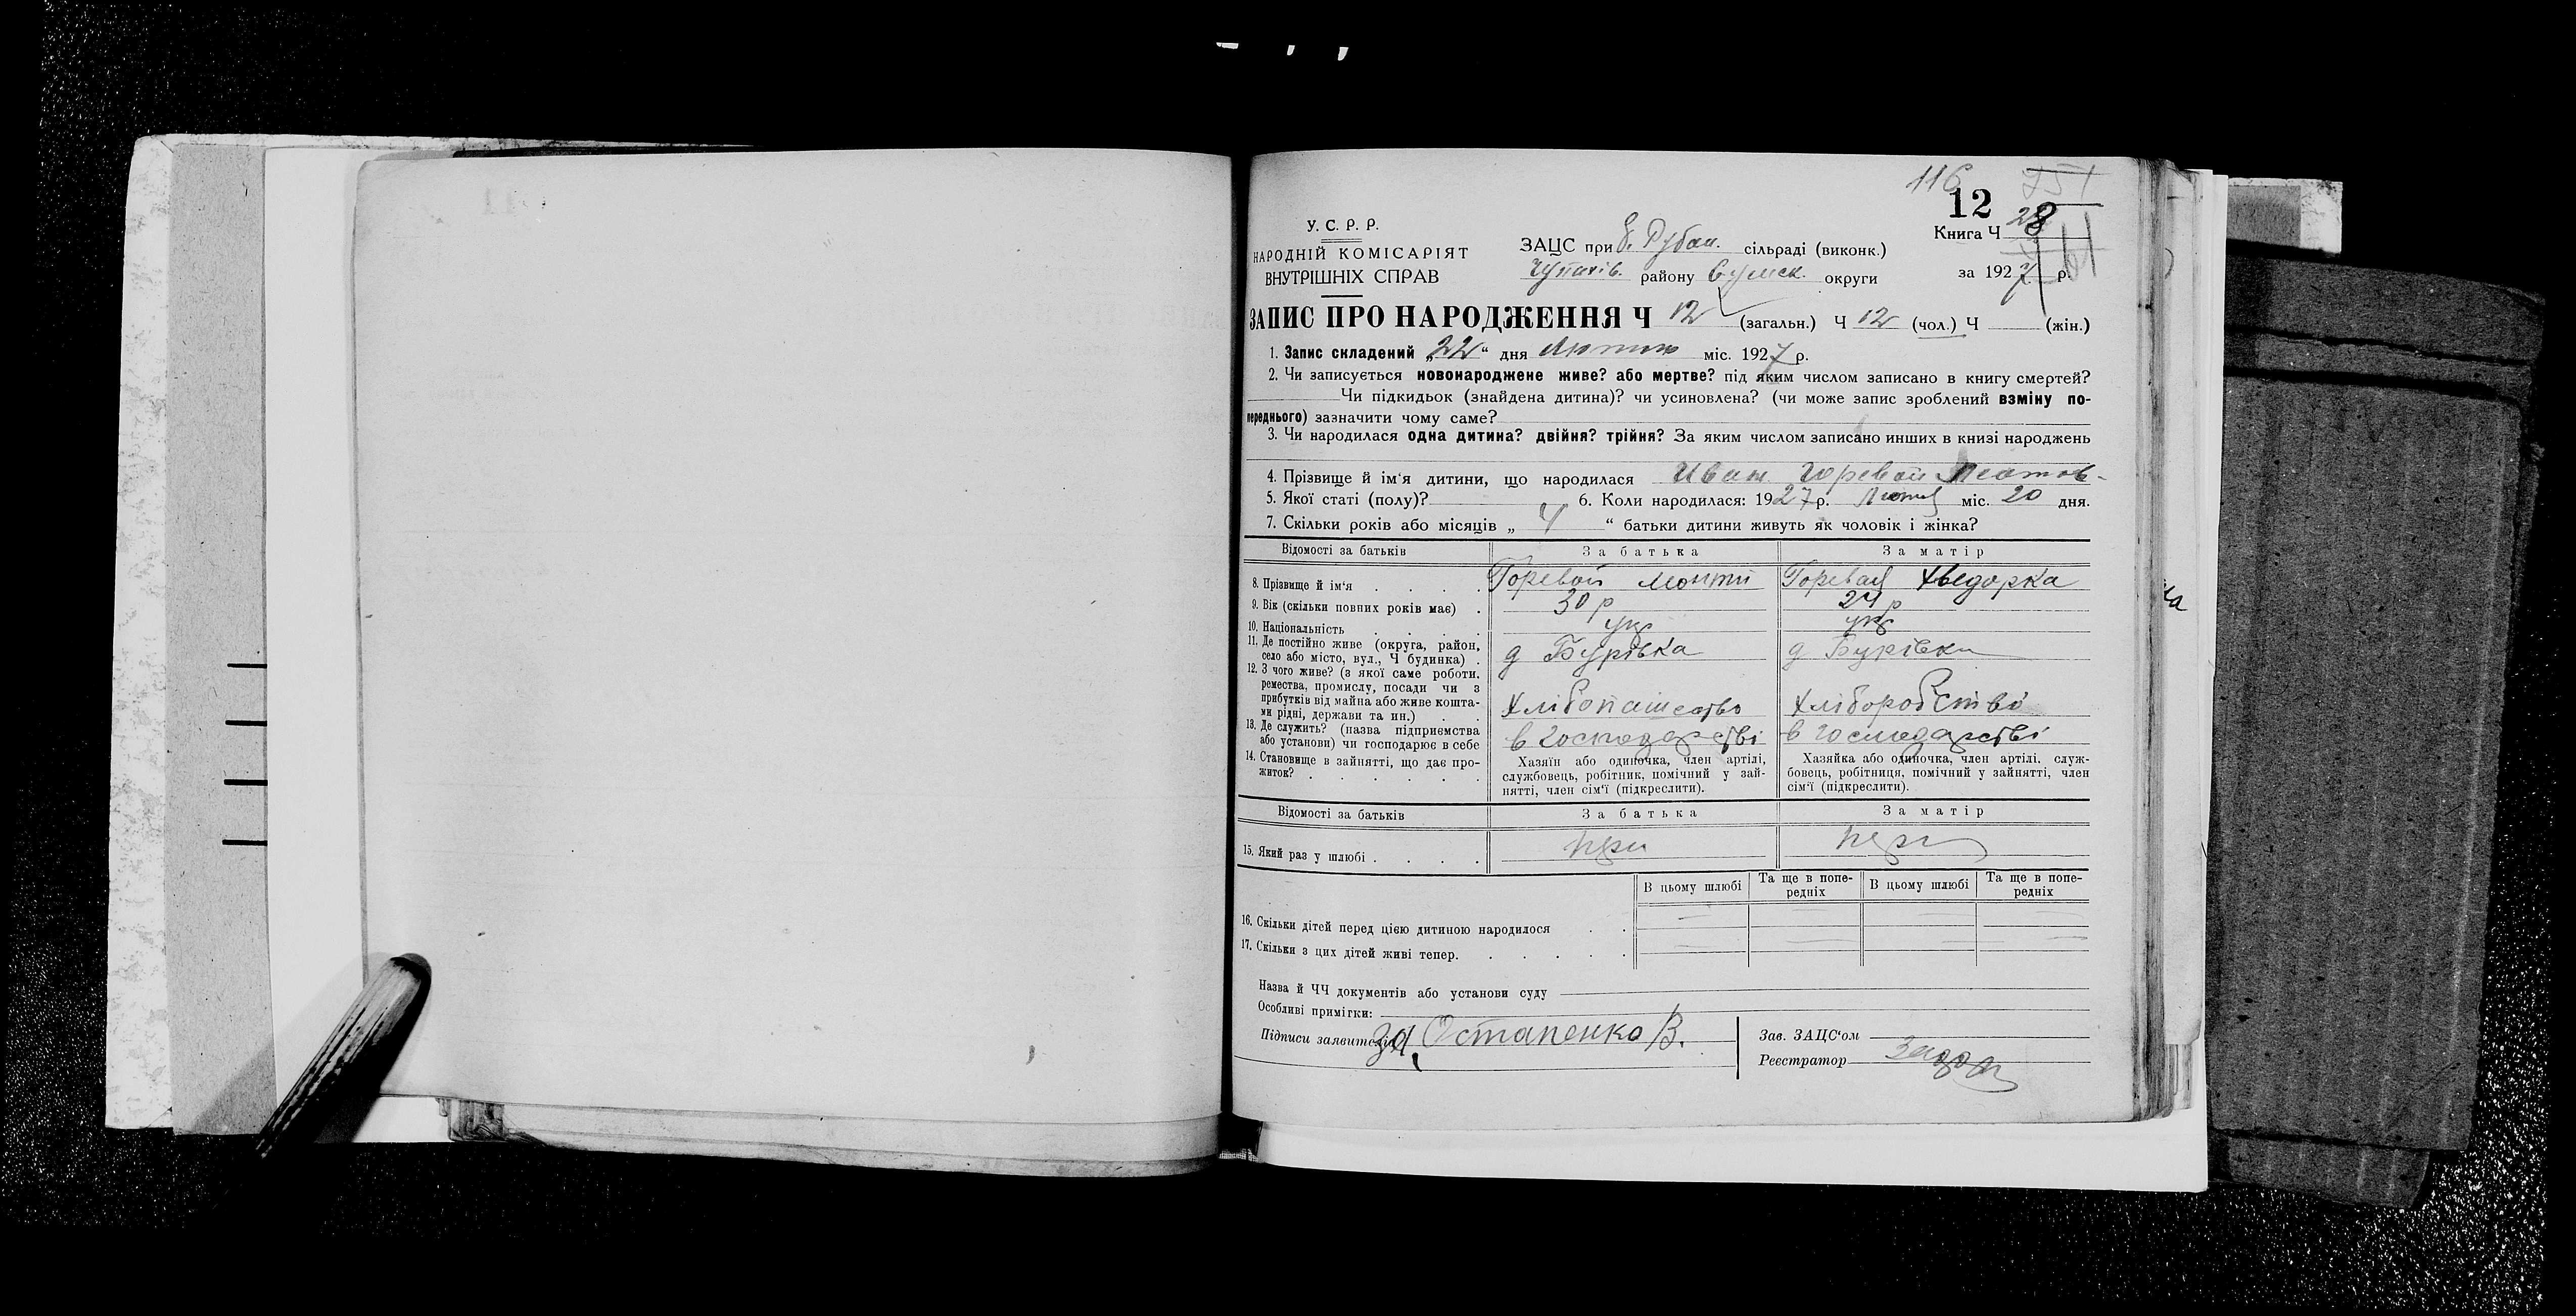 116
12
28
Книга Ч
У. С. Р. Р.
НАРОДНІЙ КОМІСАРІЯТ
ВНУТРІШНІХ СПРАВ
ЗАЦС при Рубан. сільраді (виконк.)
Чупахів. району Сумск. округи
за 1927 р.
ЗАПИС ПРО НАРОДЖЕННЯ Ч 12 (загальн.) Ч 12 (чол.) Ч (жін.)
1. Запис складений „22“ дня Лютого міс. 1927 р.
2. Чи записується новонароджене живе? або мертве? під яким числом записано в книгу смертей?
Чи підкидьок (знайдена дитина)? чи усиновлена? (чи може запис зроблений взміну по-
переднього) зазначити чому саме?
3. Чи народилася одна дитина? двійня? трійня? За яким числом записано инших в книзі народжень
4. Прізвище й ім'я дитини, що народилася Иван Горевой
5. Якої статі (полу)? 6. Коли народилася: 1927 р. міс. 20 дня.
7. Скільки років або місяців „ 4 “ батьки дитини живуть як чоловік і жінка?
Відомості за батьків За батька За матір
8. Прізвище й ім'я . . . . Горевой Горевая Хведорка
9. Вік (скільки повних років має) . 30 р 24 р
10. Національність . . . . укр укр
11. Де постійно живе (округа, район,
село або місто, вул., Ч будинка) . д Бурівка д Бурівки
12. З чого живе? (з якої саме роботи.
ремества, промислу, посади чи з
прибутків від майна або живе кошта-
ми рідні, держави та ин.) . . Хлібопашество Хліборобство
13. Де служить? (назва підприємства
або установи) чи господарює в себе в господарстві в господарстві
14. Становище в зайнятті, що дає про-
житок? . . . . . .
Хазяїн або одиночка, член артілі,
службовець, робітник, помічний у зай-
нятті, член сім'ї (підкреслити).
Хазяйка або одиночка, член артілі, служ-
бовець, робітниця, помічний у зайнятті, член
сім'ї (підкреслити).
Відомості за батьків За батька За матір
15. Який раз у шлюбі . . . .
В цьому шлюбі Та ще в попе-
редніх В цьому шлюбі Та ще в попе-
редніх
16. Скільки дітей перед цією дитиною народилося . .
17. Скільки з цих дітей живі тепер. . . . . .
Назва й ЧЧ документів або установи суду
Особливі примітки:
Підписи заявителів за Остапенко В.
Зав. ЗАЦС'ом
Реєстратор